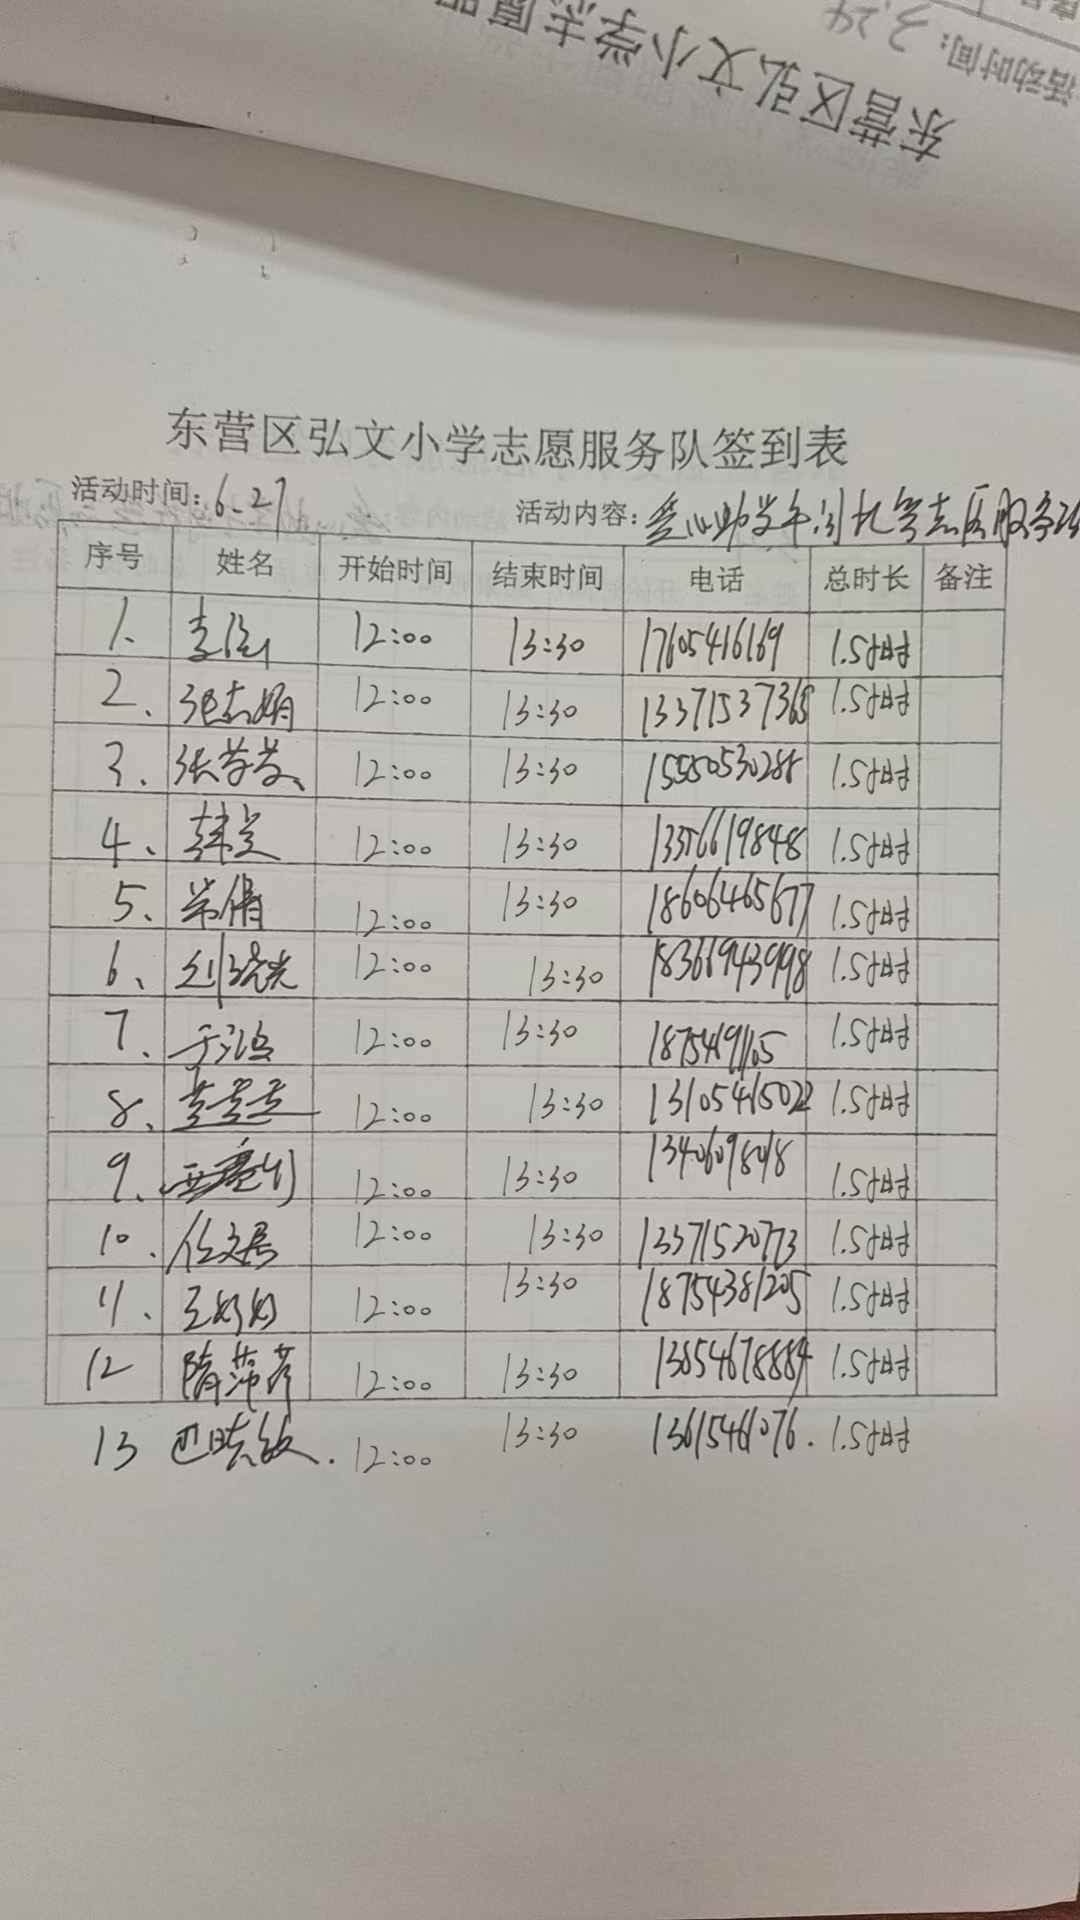 东营区弘文小学志愿
活动时间：3.24
东营区弘文小学志愿服务队签到表
活动时间：6.27 活动内容：爱心助学午间托管志愿服务活
序号 姓名 开始时间 结束时间 电话 总时长 备注
1、 12:00 13:30 17605416169 1.5小时
2、 张志娟 12:00 13:30 13371537365 1.5小时
3、 张芳芳 12:00 13:30 15550530288 1.5小时
4、 12:00 13:30 13356619848 1.5小时
5、 常倩 12:00 13:30 18606465677 1.5小时
6、 刘晓光 12:00 13:30 18366943998 1.5小时
7、 于泓 12:00 13:30 1.5小时
8、 12:00 13:30 13105415022 1.5小时
9、 12:00 13:30 1.5小时
10、 任文 12:00 13:30 13371520773 1.5小时
11、 王好好 12:00 13:30 18754381205 1.5小时
12 隋萍 12:00 13:30 13854678884 1.5小时
13 巴晓敏 12:00 13:30 13615461076 1.5小时